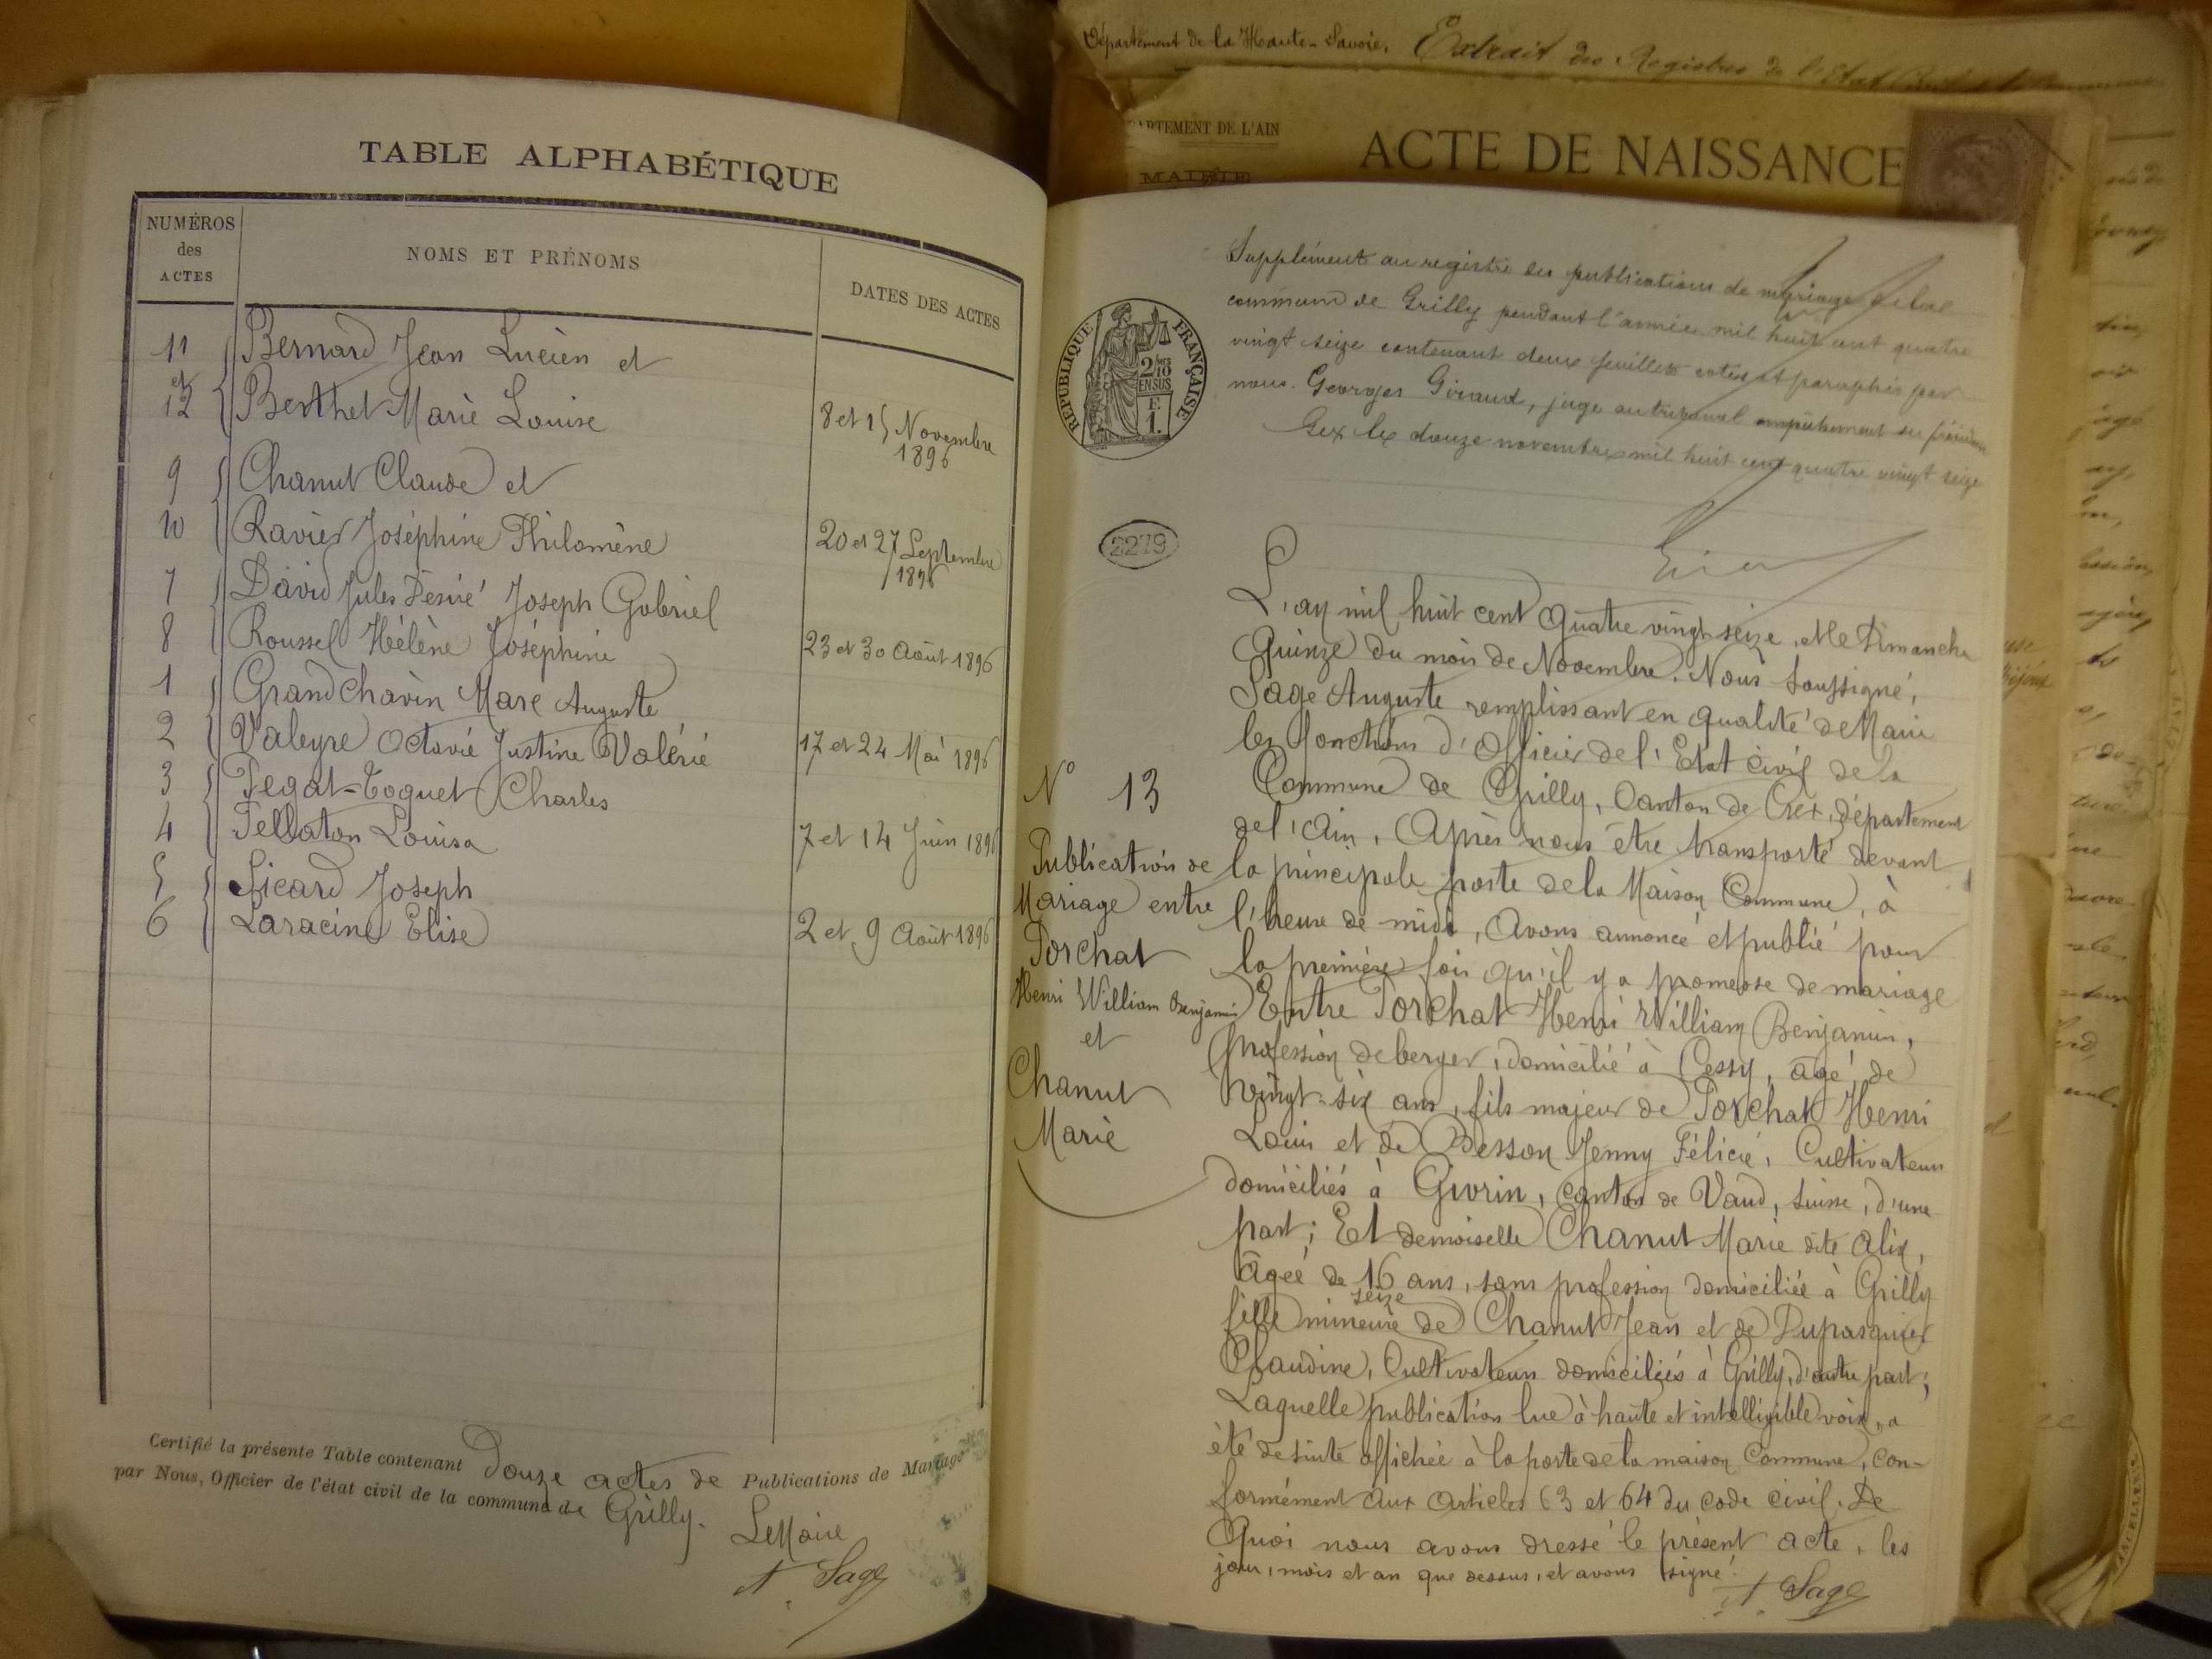 Département de la Haute-Savoie. Extrait des Registres de l'Etat
PARTEMENT DE L'AIN
MAIRIE
ACTE DE NAISSANCE
TABLE ALPHABÉTIQUE
NUMÉROS des ACTES
NOMS ET PRÉNOMS
DATES DES ACTES
11 Bernard Jean Lucien et
et
12 Berthet Marie Louise 8 et 15 Novembre
1896
9 Chanut Claude et
10 Ravier Joséphine Philomène 20 et 27 Septembre
1896
7 David Jules Désiré Joseph Gabriel
8 Roussel Hélène Joséphine 23 et 30 Août 1896
1 Grandchavin Marc Auguste
2 Valeyre Octavie Justine Valérie 17 et 24 Mai 1896
3 Pegat-Toquet Charles
4 Pellaton Louisa 7 et 14 Juin 1896
5 Sicard Joseph
6 Laracine Elise 2 et 9 Août 1896
Certifié la présente Table contenant Douze actes de Publications de Mariage
par Nous, Officier de l'état civil de la commune de Grilly.
Le Maire
A. Sage
Supplément au registre des publications de mariage de la
commune de Grilly pendant l'année mil huit cent quatre
vingt seize contenant deux feuillets cotés et paraphés par
nous. Georges Giraud, juge au tribunal empêchement du président
Gex le douze novembre mil huit cent quatre vingt seize
RÉPUBLIQUE FRANÇAISE
2/10
EN SUS
F.
1.
2279
L'an mil huit cent quatre vingt seize, et le Dimanche
Quinze du mois de Novembre. Nous soussigné,
Sage Auguste remplissant en qualité de Maire
les fonctions d'Officier de l'Etat civil de la
Commune de Grilly, Canton de Gex, département
de l'Ain, Après nous être transporté devant
la principale porte de la Maison Commune, à
l'heure de midi, avons annoncé et publié pour
la première fois qu'il y a promesse de mariage
Entre Porchat Henri William Benjamin,
profession de berger, domicilié à Cessy, âgé de
vingt-six ans, fils majeur de Porchat Henri
Louis et de Besson Jenny Félicie, Cultivateurs
domiciliés à Givrin, canton de Vaud, Suisse, d'une
part; Et demoiselle Chanut Marie dite Alix,
âgée de 16 ans, sans profession domiciliée à Grilly
seize
fille mineure de Chanut Jean et de Dupasquier
Claudine, Cultivateurs domiciliés à Grilly, d'autre part;
Laquelle publication lue à haute et intelligible voix, a
été de suite affichée à la porte de la maison Commune, con-
formément aux articles 63 et 64 du code civil. De
Quoi nous avons dressé le présent acte, les
jour, mois et an que dessus, et avons signé.
A. Sage
N° 13
Publication de
Mariage entre
Porchat
Henri William Benjamin
et
Chanut
Marie